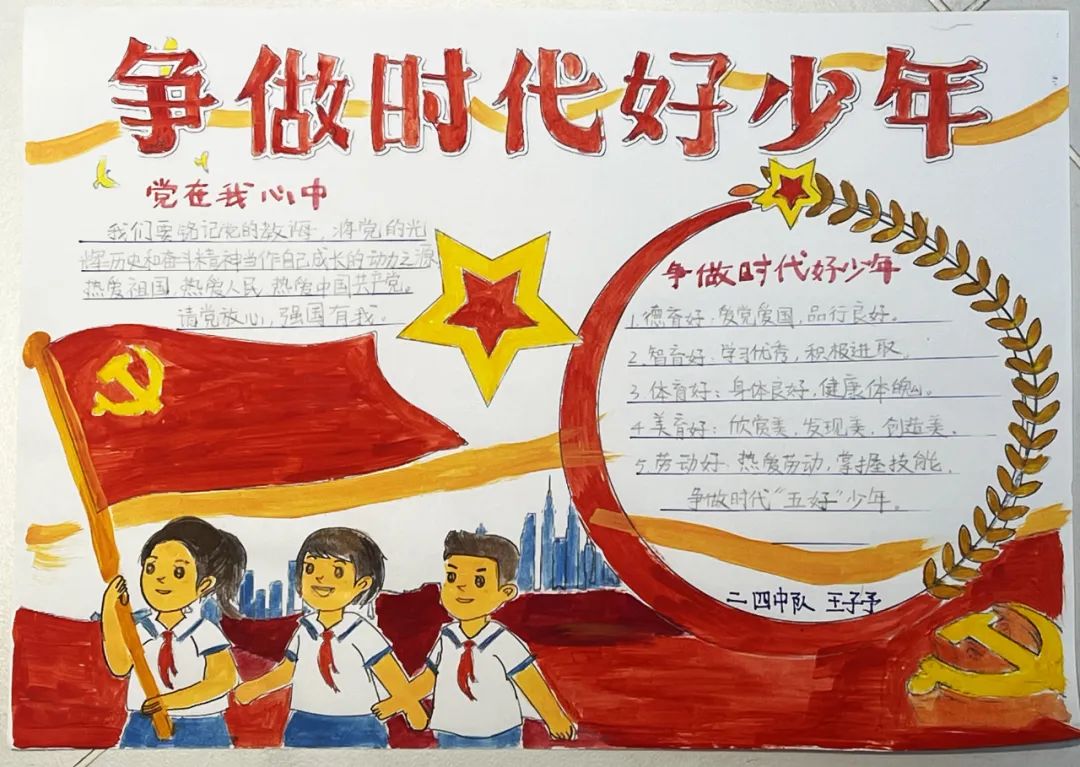 争做时代好少年
党在我心中
我们要铭记党的教诲，将党的光
辉历史和奋斗精神当作自己成长的动力之源
热爱祖国，热爱人民，热爱中国共产党。
请党放心，强国有我。
争做时代好少年
1.德育好：爱党爱国，品行良好。
2.智育好：学习优秀，积极进取。
3.体育好：身体良好，健康体魄。
4.美育好：欣赏美，发现美，创造美。
5.劳动好：热爱劳动，掌握技能。
争做时代“五好”少年。
二四中队 王子予